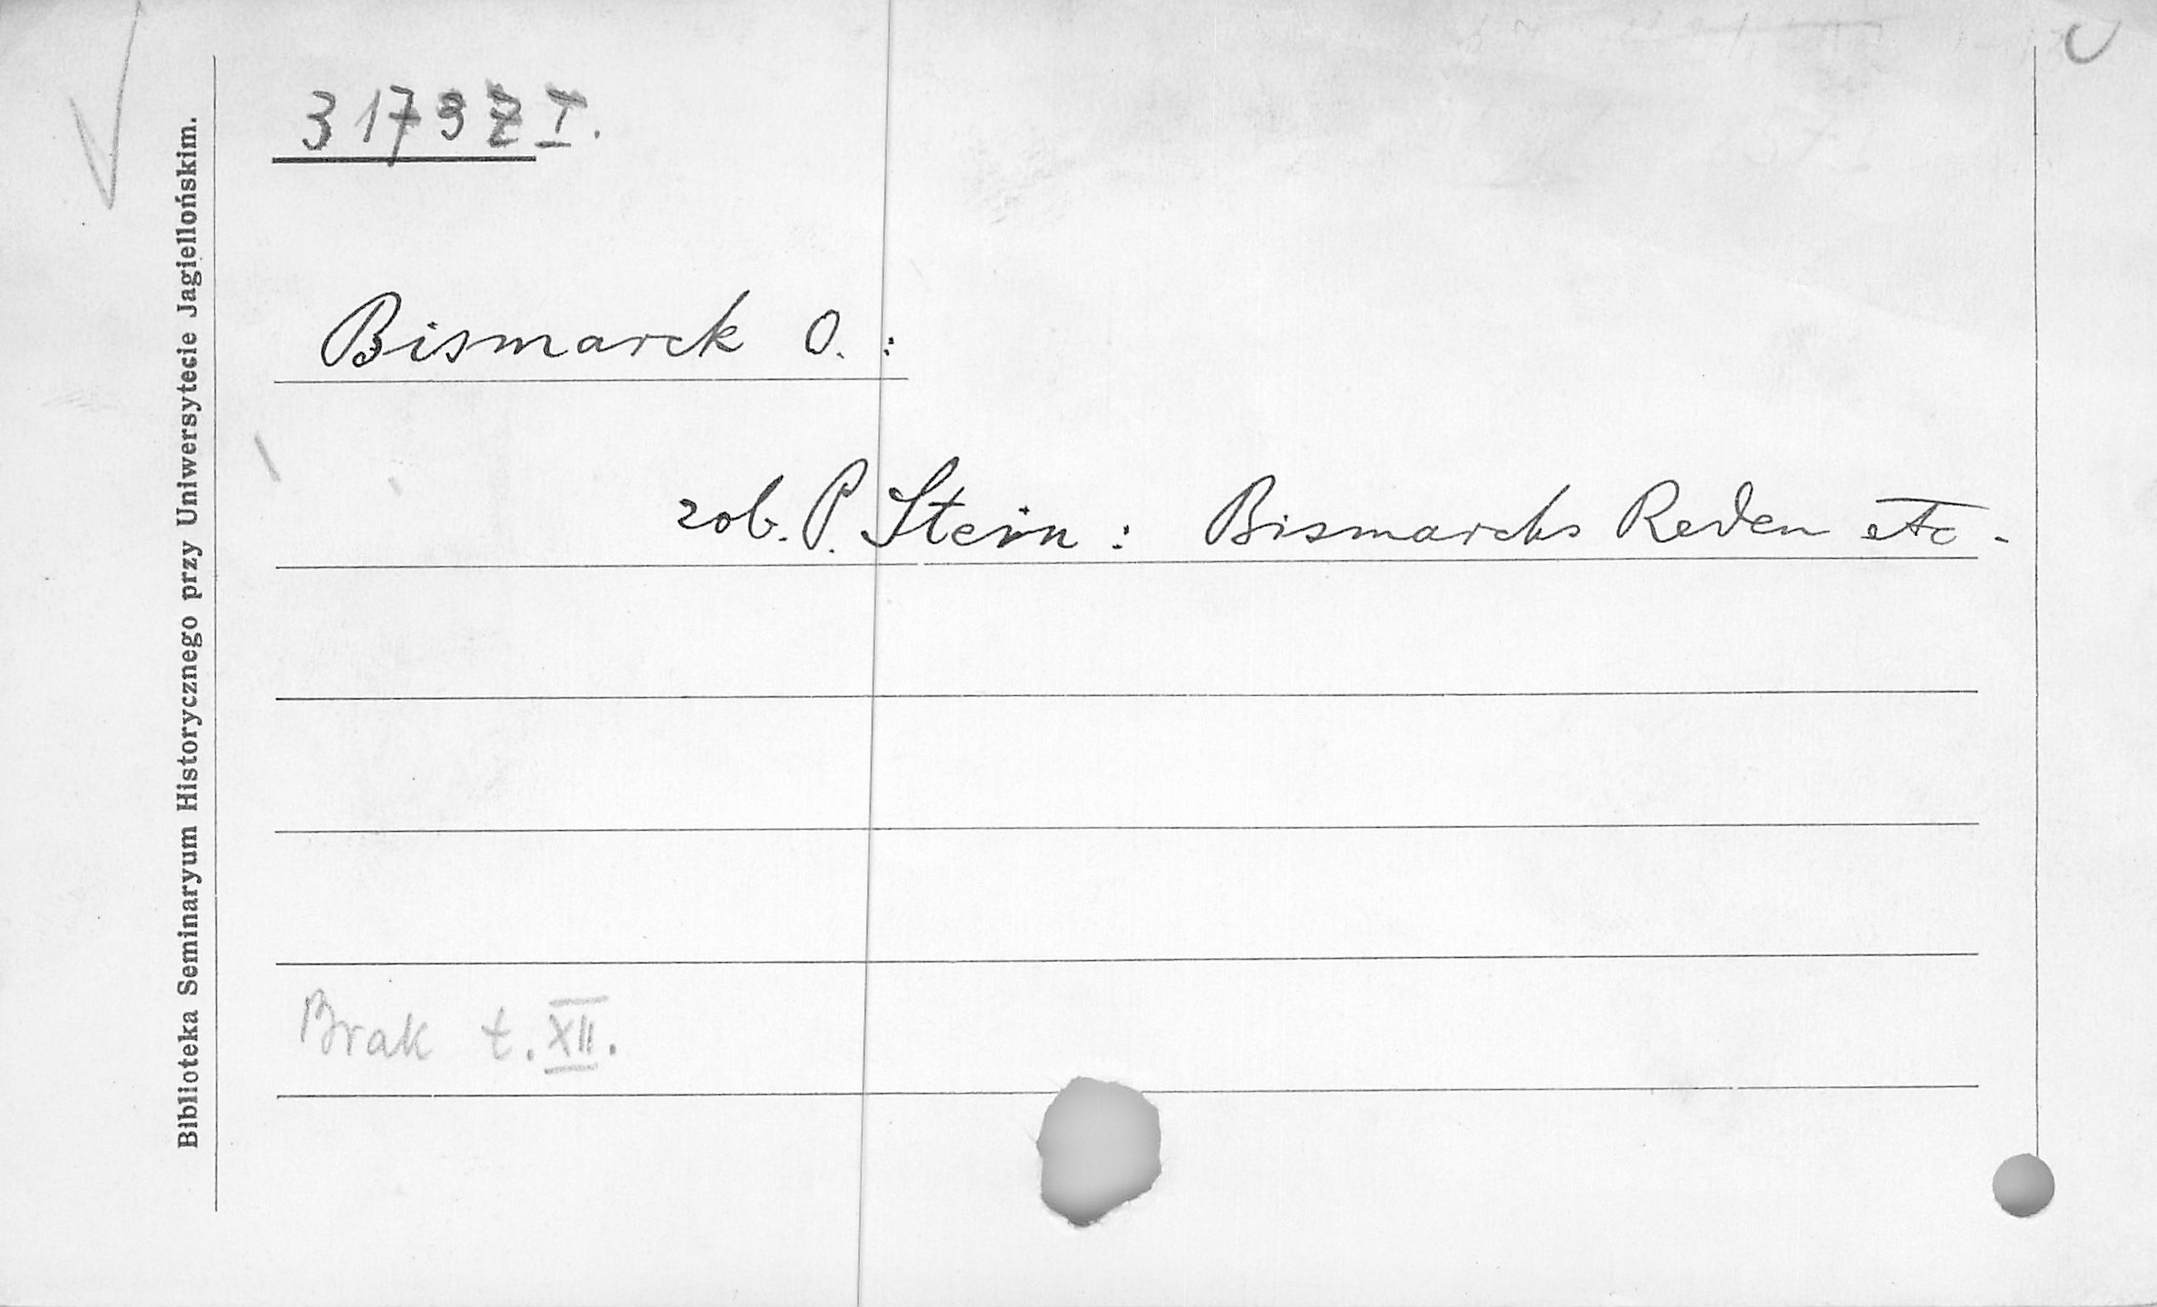 3173 Z I.
Bismarck O. :
zob. P. Stein : Bismarcks Reden etc.
Brak t. XII.
Biblioteka Seminaryum Historycznego przy Uniwersytecie Jagiellońskim.